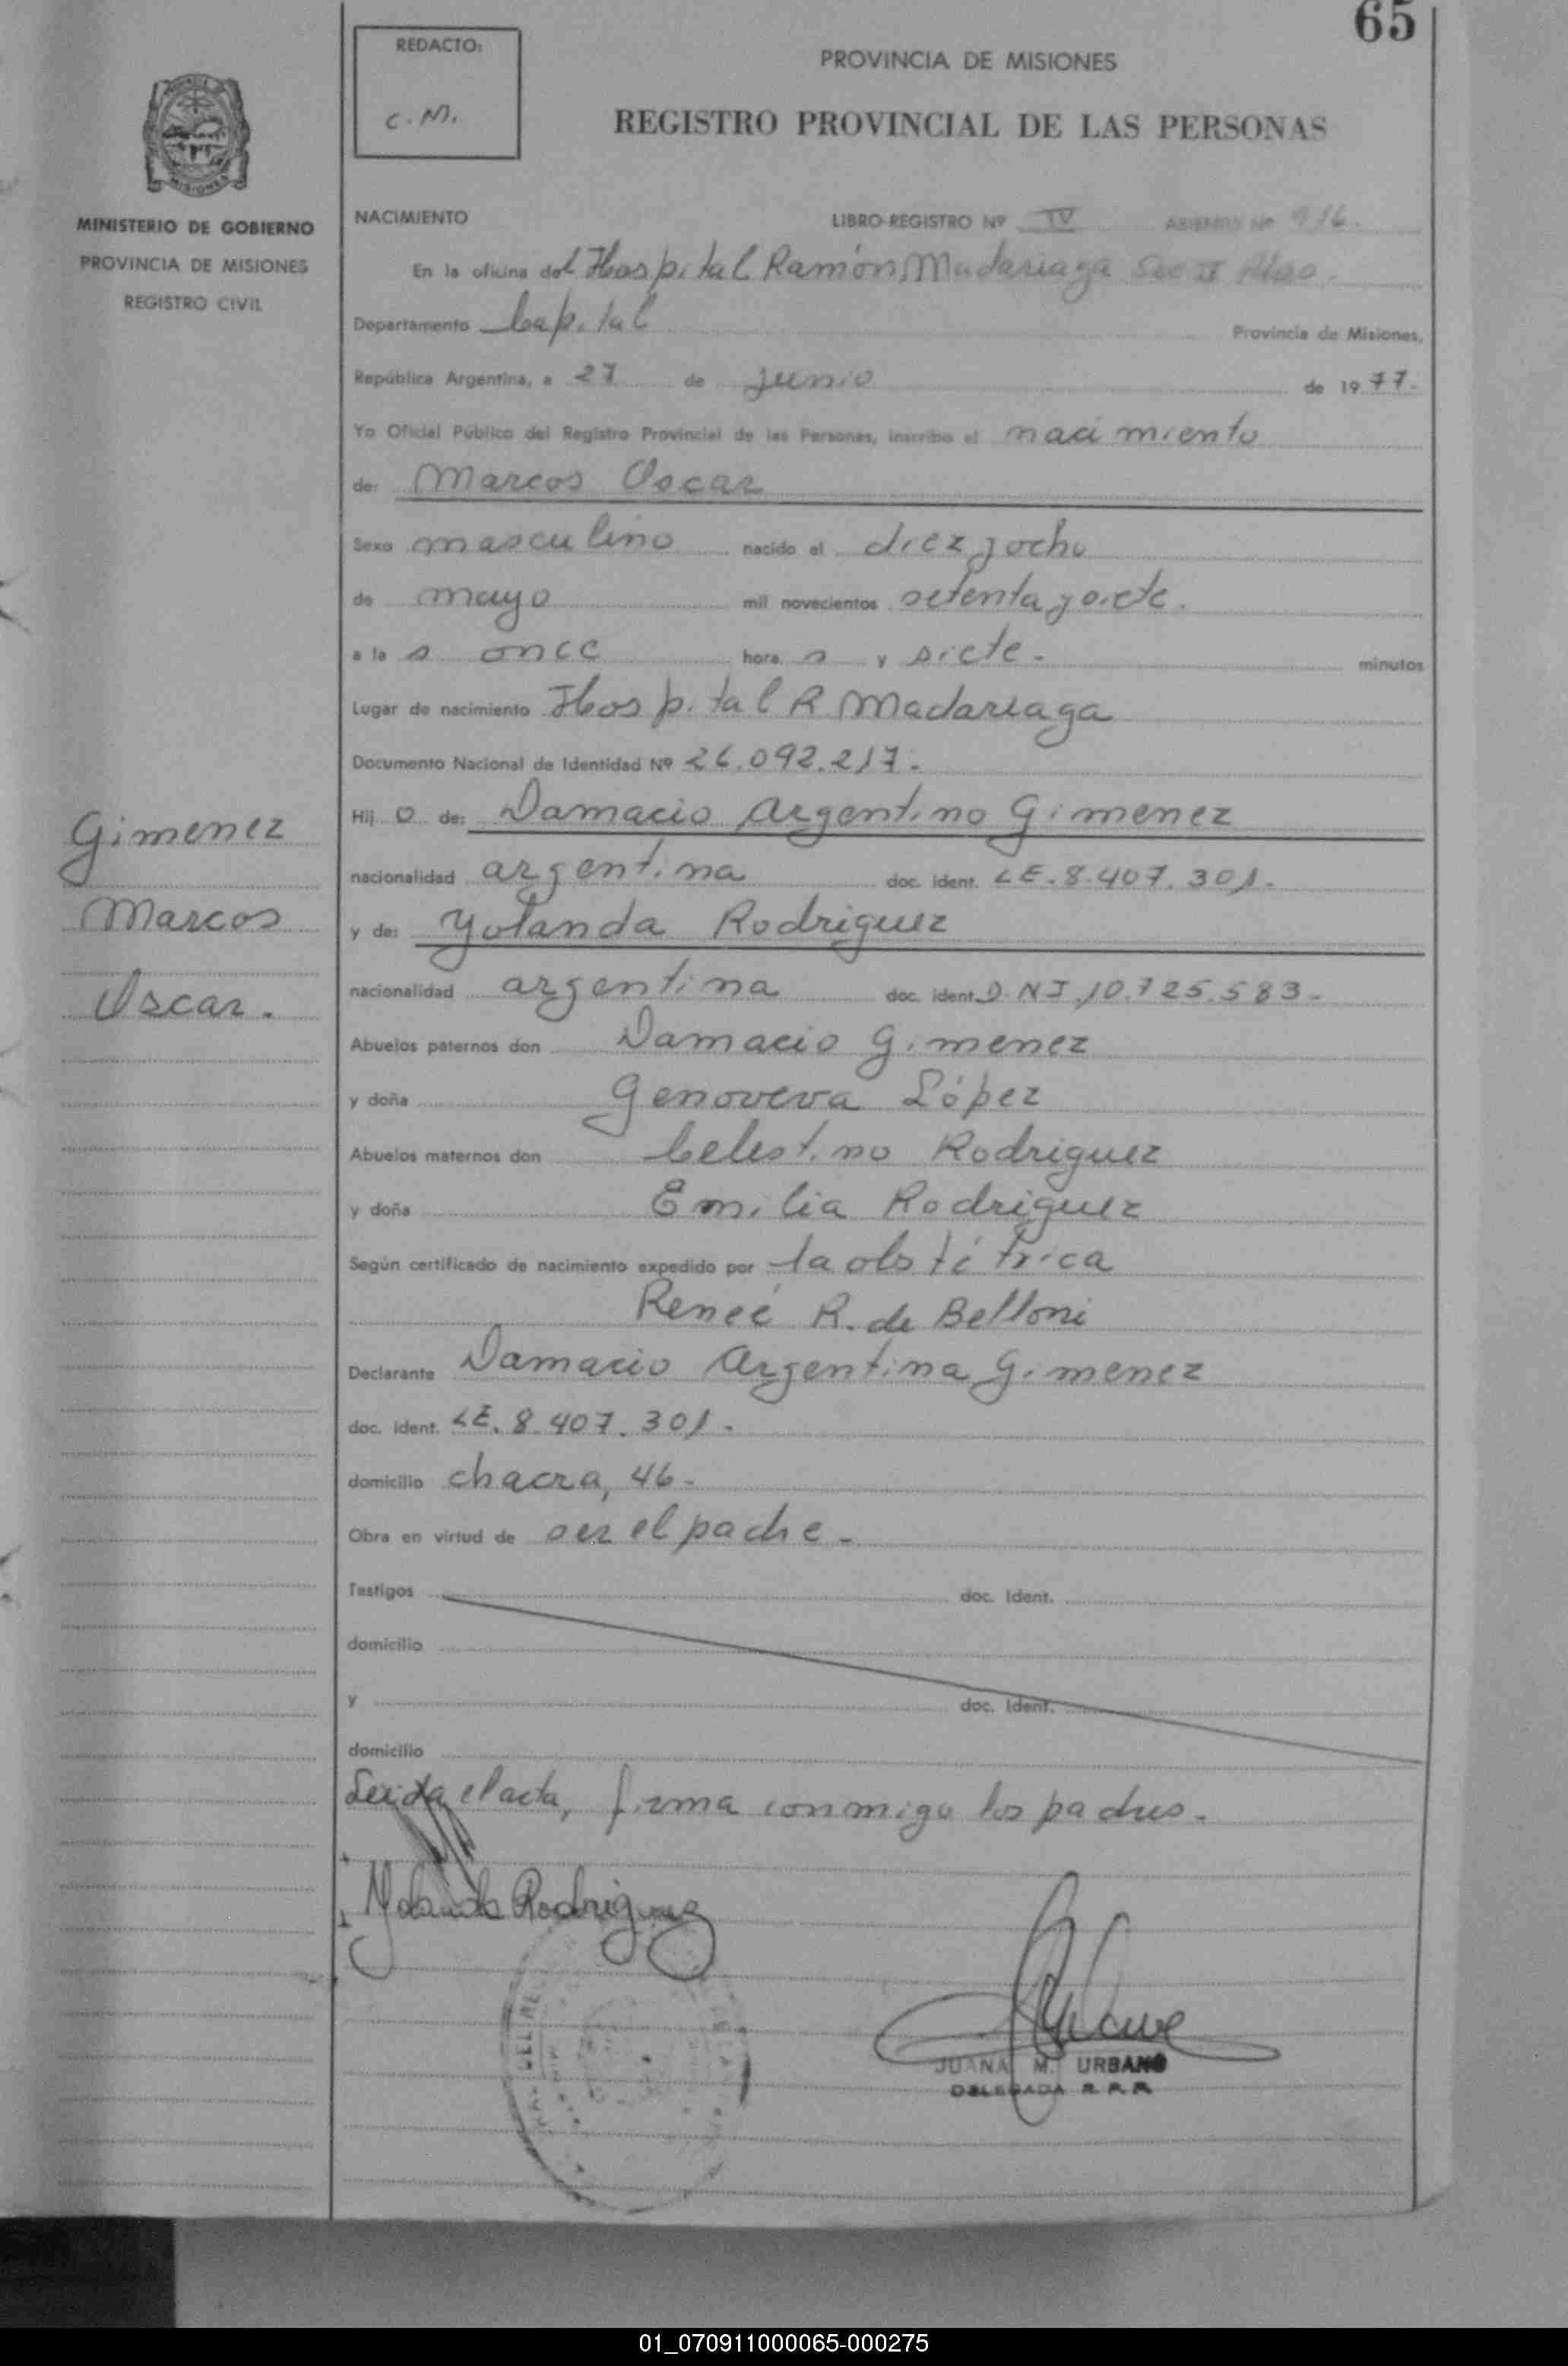 65
REDACTO:
C. M.
PROVINCIA DE MISIONES
REGISTRO PROVINCIAL DE LAS PERSONAS
MISIONES
MINISTERIO DE GOBIERNO
PROVINCIA DE MISIONES
REGISTRO CIVIL
NACIMIENTO LIBRO-REGISTRO Nº IV ASIENTO Nº 916.
En la oficina del Hospital Ramón Madariaga Sec II
Departamento Capital Provincia de Misiones,
República Argentina, a 27 de junio de 1977.
Yo Oficial Público del Registro Provincial de las Personas, inscribo el nacimiento
de: Marcos Oscar
Sexo masculino nacido el diez y ocho
de mayo mil novecientos setenta y siete.
a la s once hora s y siete. minutos
Lugar de nacimiento Hospital R Madariaga
Documento Nacional de Identidad Nº 26.092.217.
Hij o de: Damacio Argentino Gimenez
nacionalidad argentina doc. ident. LE. 8.407.301.
y de: Yolanda Rodriguez
nacionalidad argentina doc. ident. D.N.I. 10.725.583.
Abuelos paternos don Damacio Gimenez
y doña Genoveva López
Abuelos maternos don Celestino Rodriguez
y doña Emilia Rodriguez
Según certificado de nacimiento expedido por la obstétrica
Reneé R. de Belloni
Declarante Damacio Argentina Gimenez
doc. ident. LE. 8.407.301.
domicilio chacra, 46.
Obra en virtud de ser el padre.
Testigos doc. Ident.
domicilio
y doc. Ident.
domicilio
Leida el acta, firma conmigo los padres.
Yolanda Rodriguez
JUANA M. URBANO
DELEGADA R.P.P.
Gimenez
Marcos
Oscar.
01_070911000065-000275